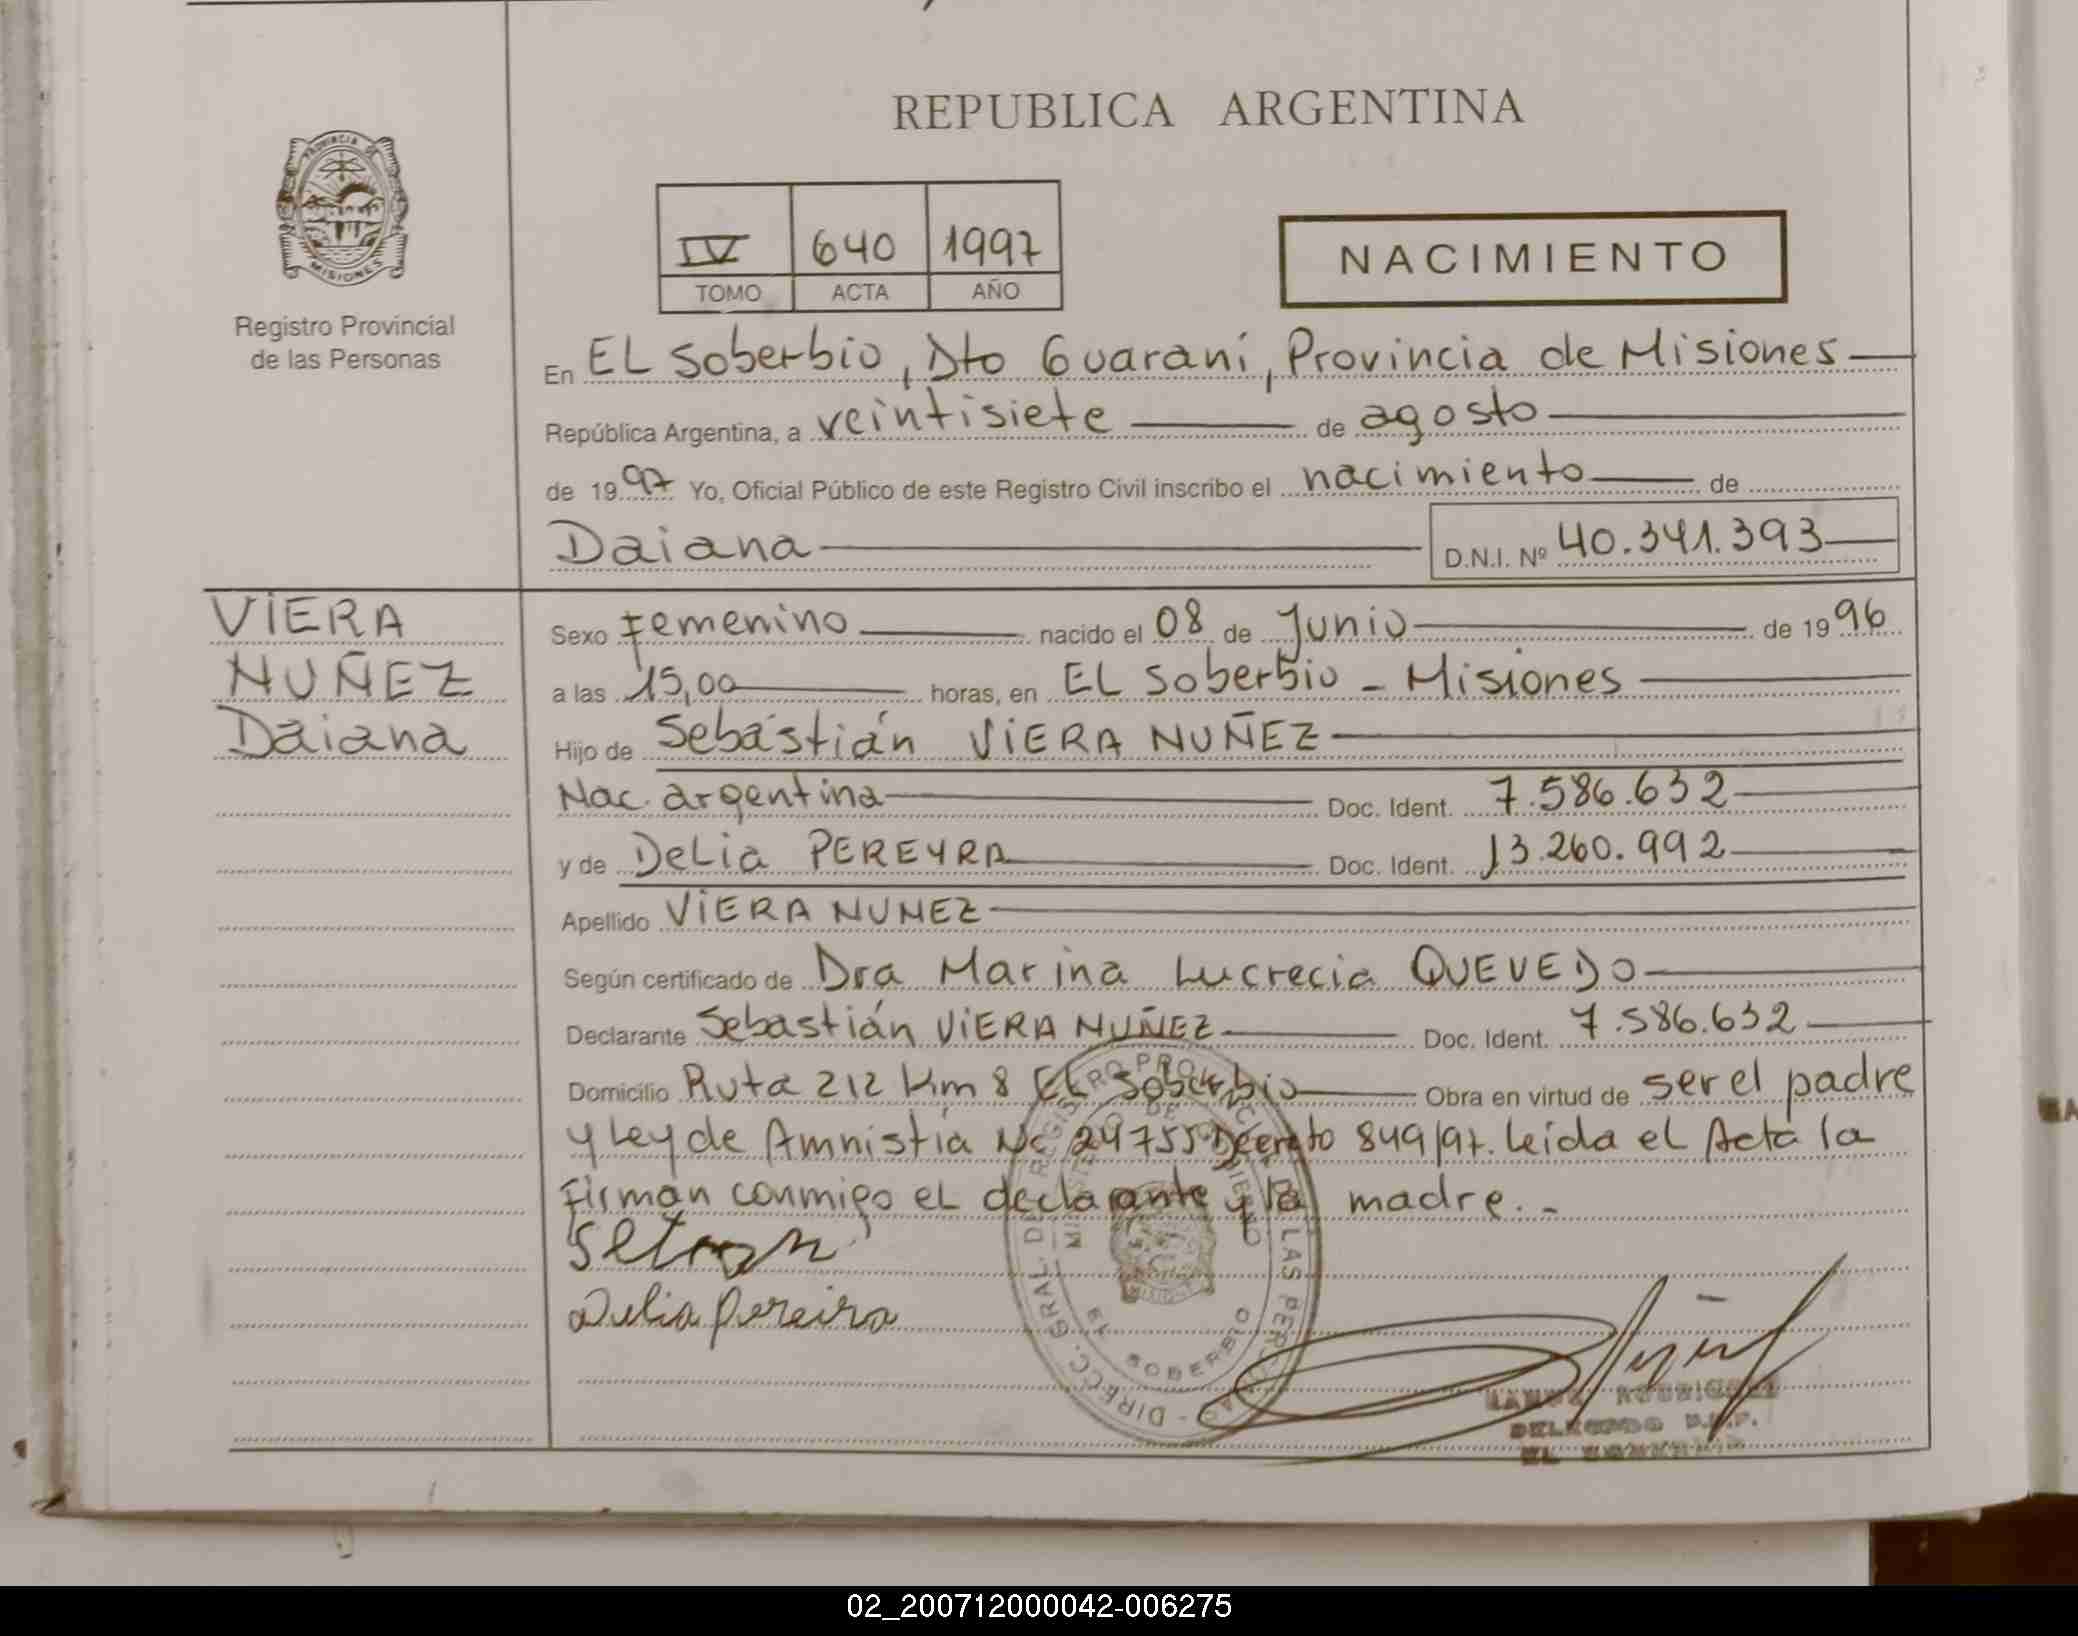 REPUBLICA ARGENTINA
PROVINCIA DE
MISIONES
Registro Provincial
de las Personas
IV 640 1997
TOMO ACTA AÑO
NACIMIENTO
En EL Soberbio, Dto Guaraní, Provincia de Misiones
República Argentina, a veintisiete de agosto
de 1997 Yo, Oficial Público de este Registro Civil inscribo el nacimiento de
Daiana D.N.I. Nº 40.341.393
VIERA
NUÑEZ
Daiana
Sexo Femenino nacido el 08 de Junio de 1996
a las 15,00 horas, en EL Soberbio - Misiones
Hijo de Sebástián VIERA NUÑEZ
Nac. argentina Doc. Ident. 7.586.632
y de Delia PEREYRA Doc. Ident. 13.260.992
Apellido VIERA NUNEZ
Según certificado de Dra Marina Lucrecia QUEVEDO
Declarante Sebastián VIERA NUÑEZ Doc. Ident. 7.586.632
Domicilio Ruta 212 Km 8 EL Soberbio Obra en virtud de ser el padre
y Ley de Amnistía Nº 24755 Decreto 849/97. Leída el Acta la
firman conmigo el declarante y la madre.-
Delia Pereira
DIRECC. GRAL. DE REGISTRO PROVINCIAL DE LAS PERSONAS
MINISTERIO DE GOBIERNO
EL SOBERBIO
RODRIGUEZ
DELEGADO R.P.P.
EL SOBERBIO
02_200712000042-006275